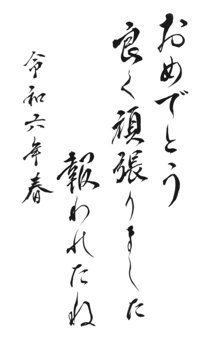 おめでとう
良く頑張りました
報われたね
令和六年春